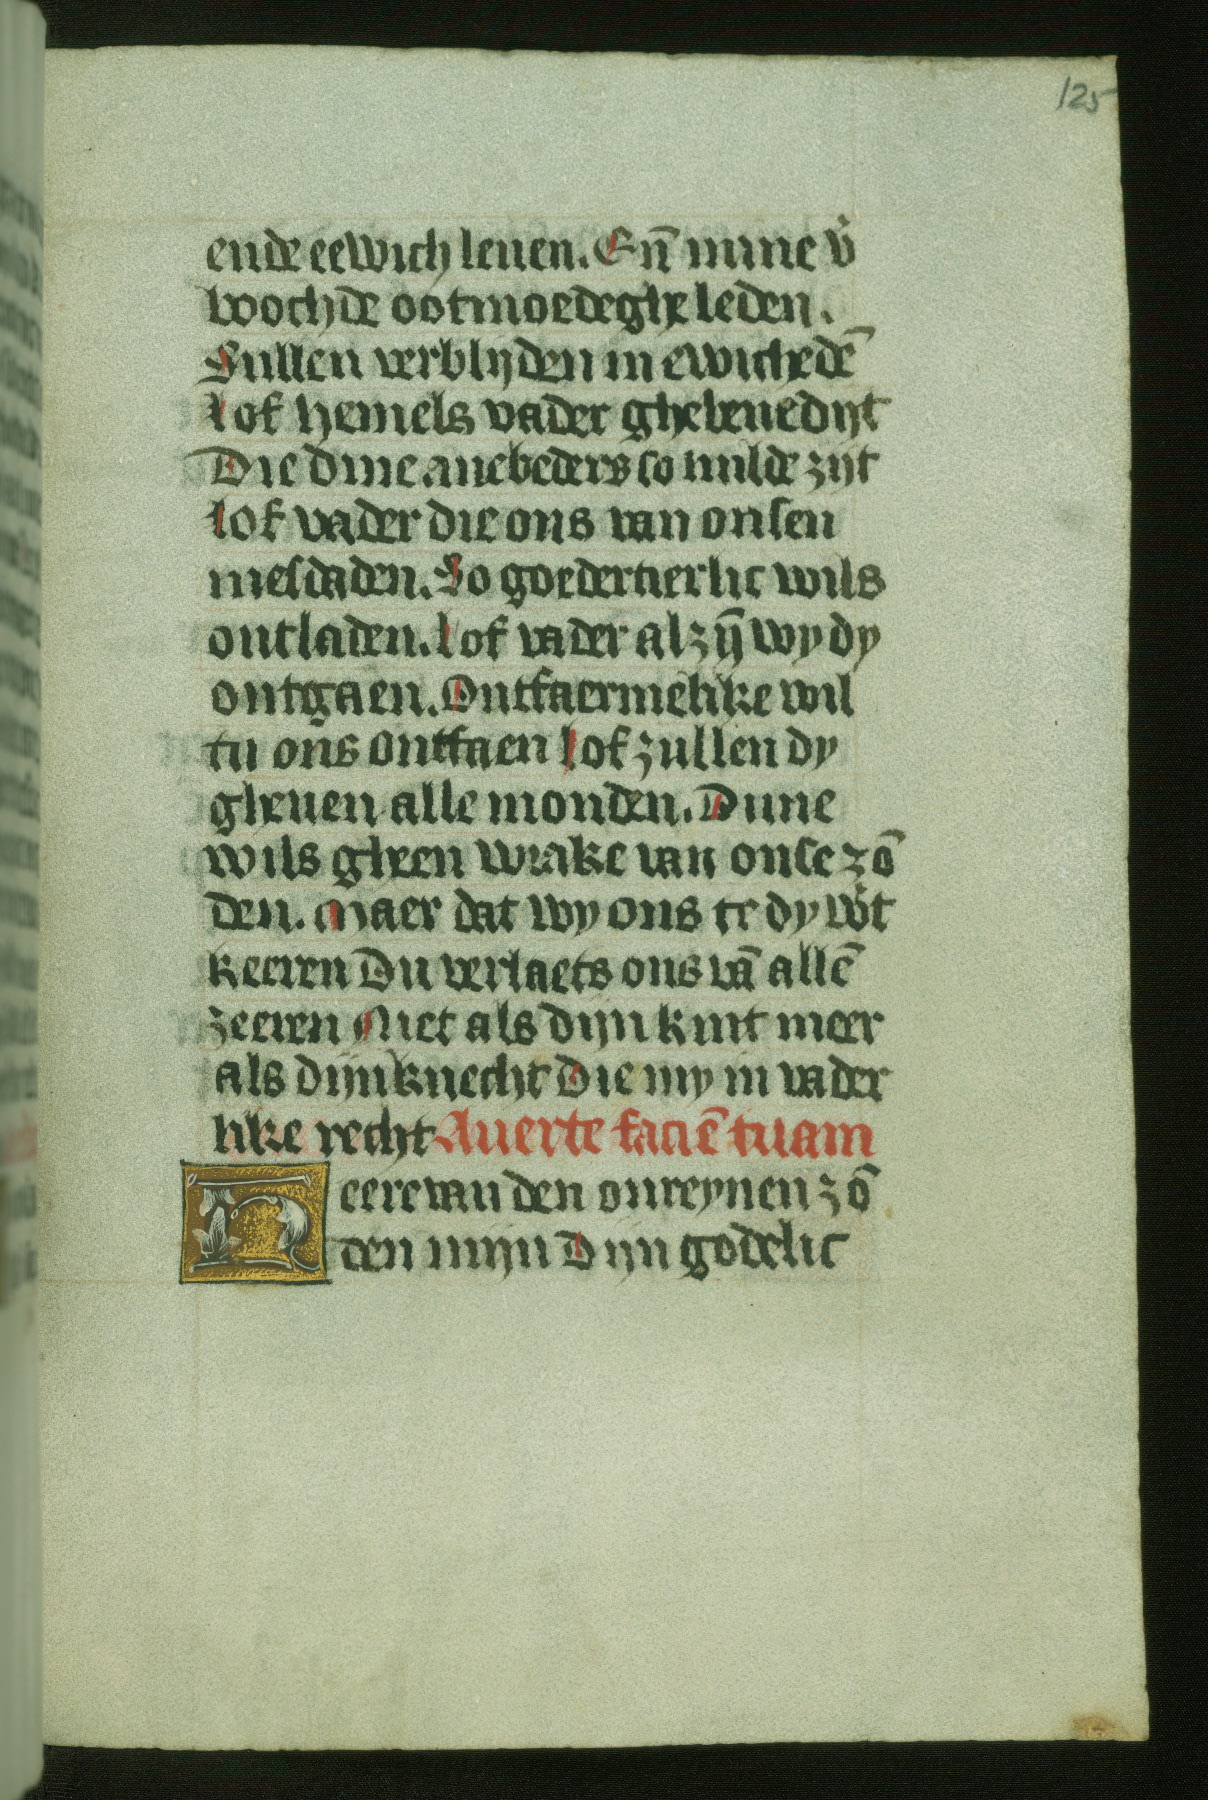 125
ende eewich leuen. En̄ mine v̄
vvochde ootmoedeghe leden.
Sullen verblijden in ewichedē
Lof hemels vader ghebenedijt
Die dine anebeders so milde zijt
Lof vader die ons van onsen
mesdaden. So goedertierlic wils
ontladen. Lof vader al zij̄ wy dy
ontgaen. Ontfaermelike wil
tu ons ontfaen Lof zullen dy
gheuen alle monden. Dune
wils gheen wrake van onse zō
den. Maer dat wy ons te dy wt
keeren Du verlaets ons vā allē
zeeren Niet als dijn kint meer
als dijn knecht Die my in vader
like recht Auerte faciē tuam
Heere van den onreynen zō
den mijn Dijn godelic